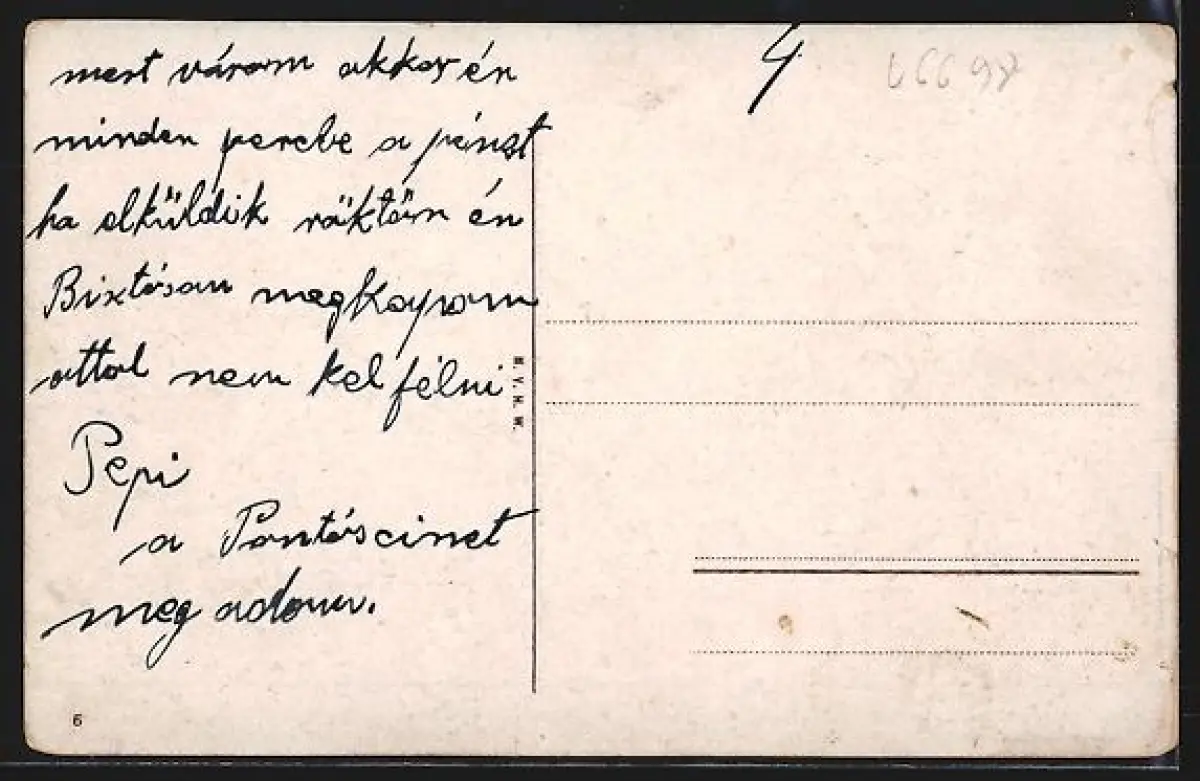 mert várom akkor én
minden percbe a pénzt
ha elküldik röktön én
Biztósan megkapom
attol nem kel félni
Pepi
a Pontóscimet
meg adom.
4
66698
H. V. H. W.
6